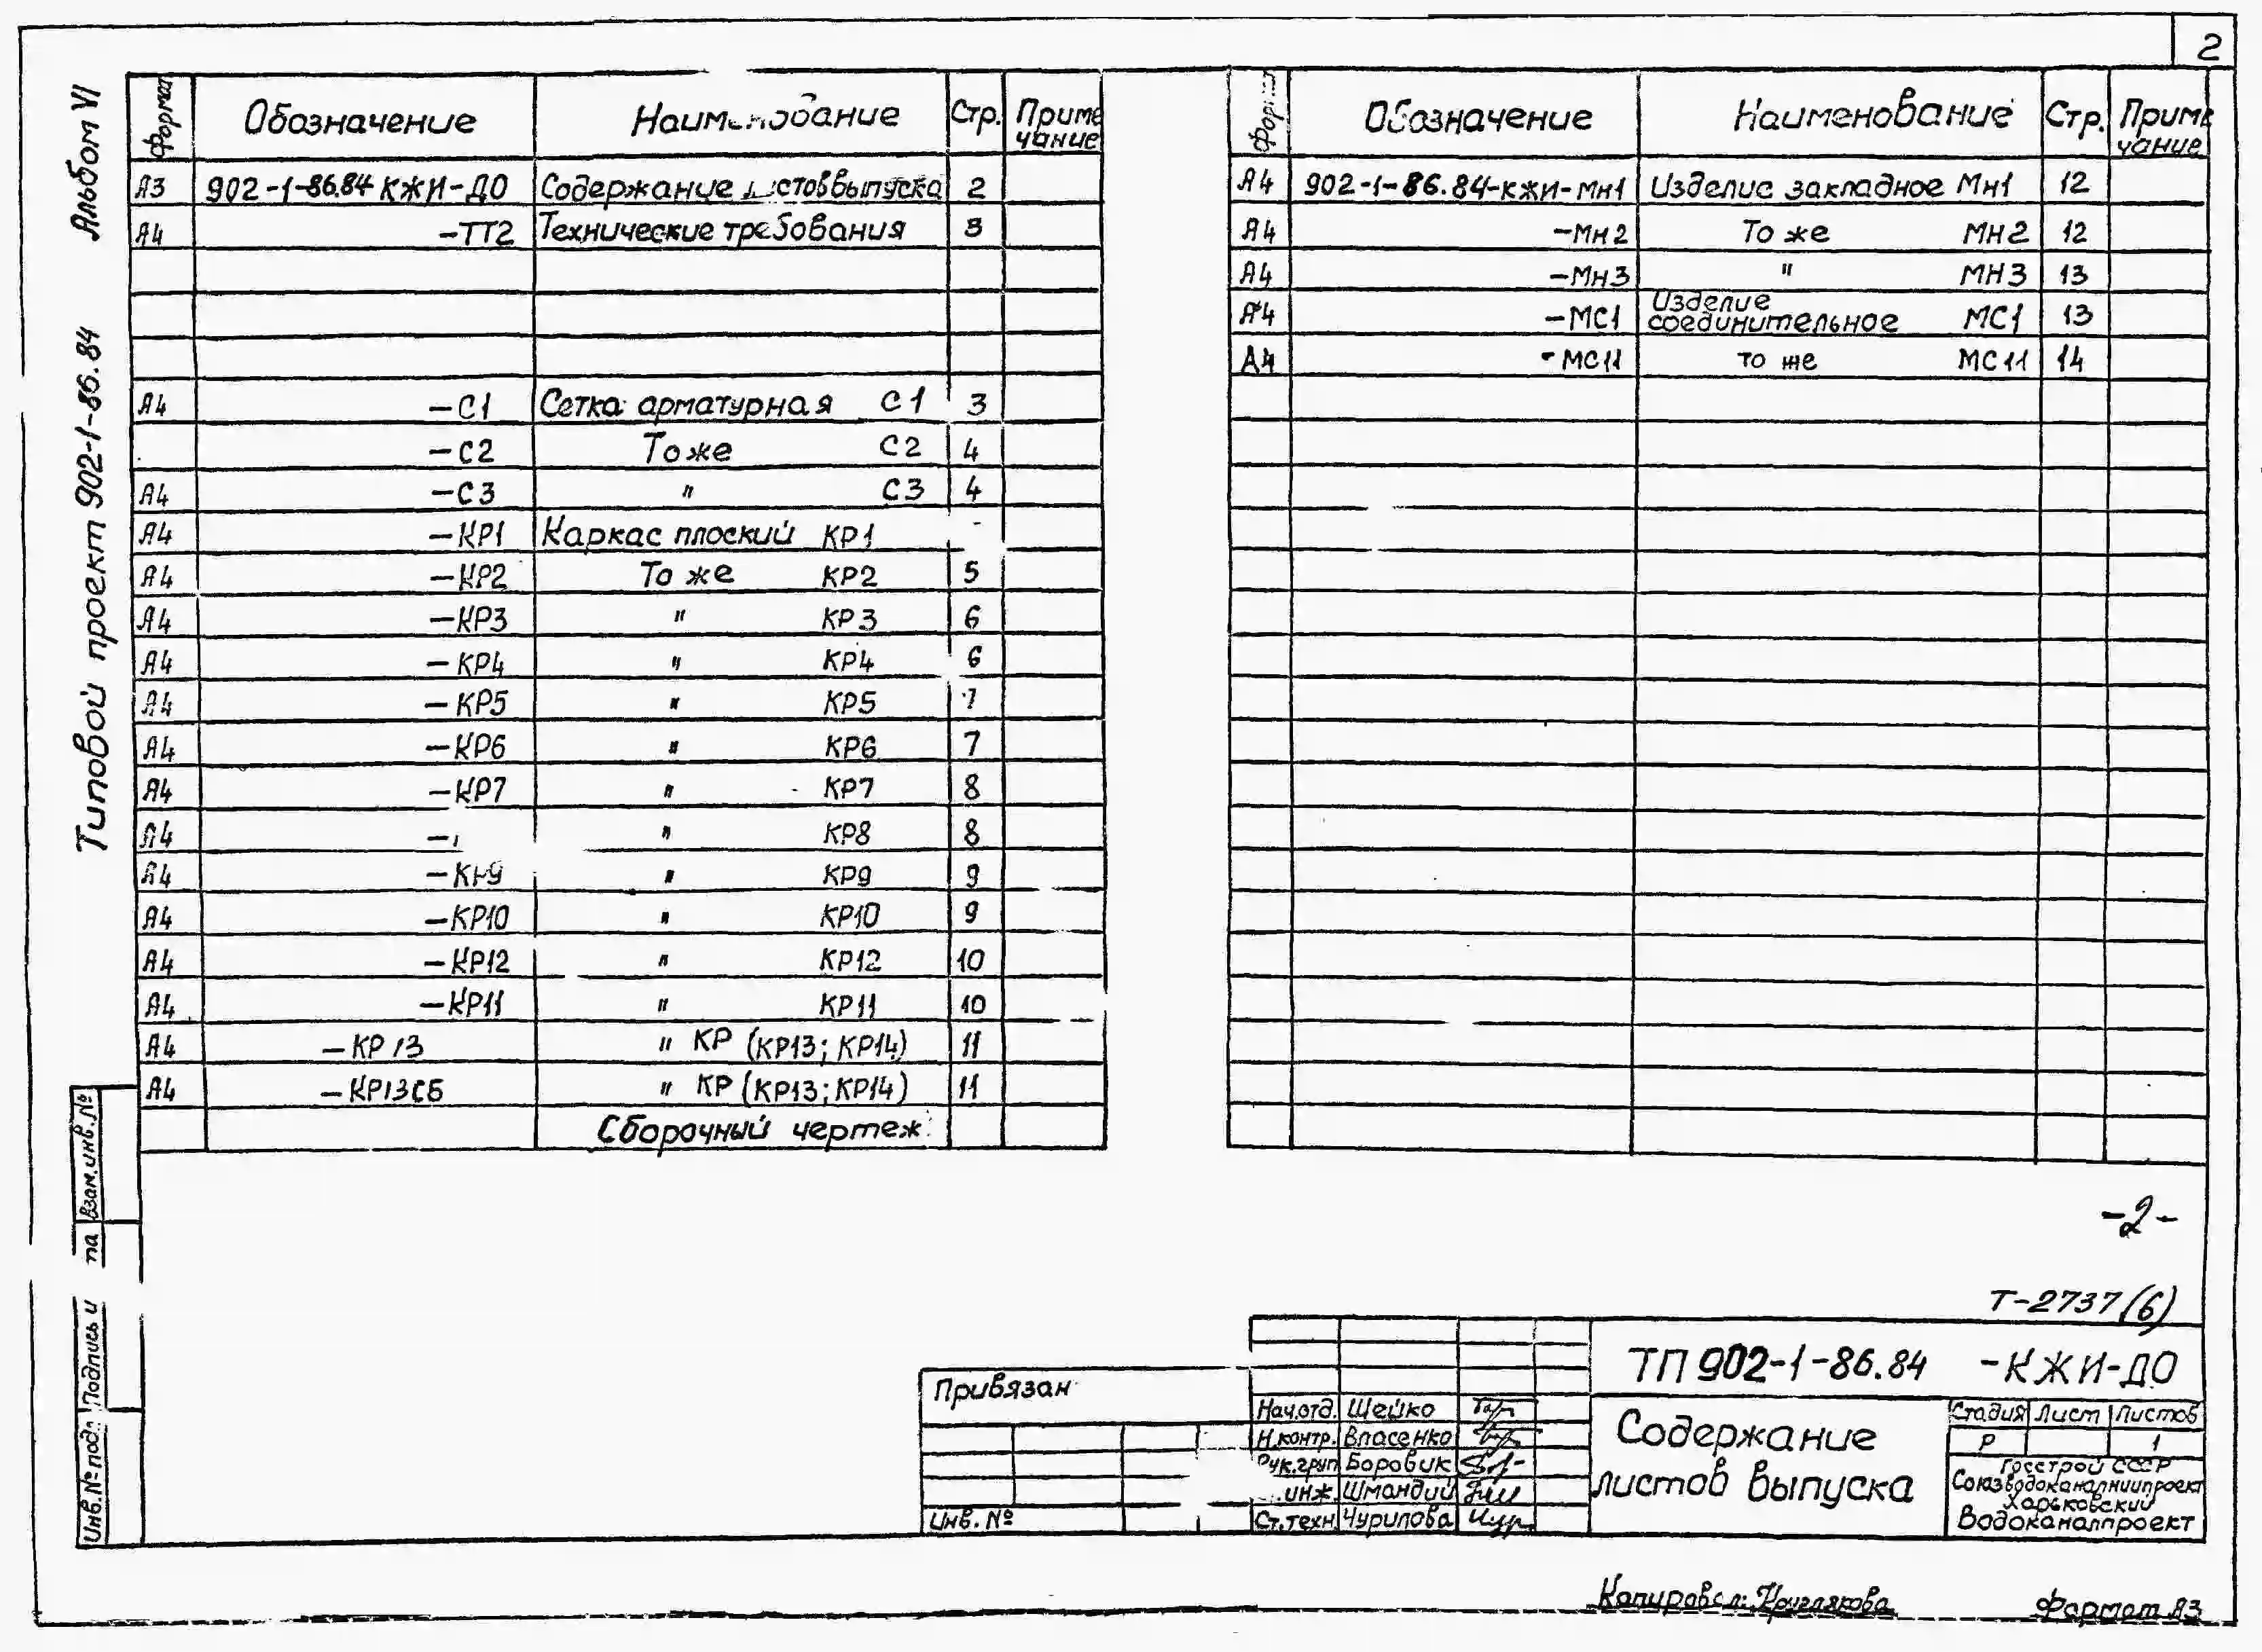 2
Альбом VI
Типовой проект 902-1-86.84
Обозначение Стр. Приме
чание
А3 902-1-86.84 КЖИ-ДО Содержание выпуска 2
А4 -ТТ2 Технические требования 3
А4 -С1 Сетка арматурная С1 3
-С2 То же С2 4
А4 -С3 " С3 4
А4 -КР1 Каркас плоский КР1
А4 -КР2 То же КР2 5
А4 -КР3 " КР3 6
А4 -КР4 " КР4 6
А4 -КР5 " КР5 7
А4 -КР6 " КР6 7
А4 -КР7 " КР7 8
А4 - " КР8 8
А4 -КР9 " КР9 9
А4 -КР10 " КР10 9
А4 -КР12 " КР12 10
А4 -КР11 " КР11 10
А4 -КР13 " КР (КР13; КР14) 11
А4 -КР13СБ " КР (КР13; КР14) 11
Сборочный чертеж
Обозначение Наименование Стр. Приме
чание
А4 902-1-86.84-КЖИ-Мн1 Изделие закладное Мн1 12
А4 -Мн2 То же МН2 12
А4 -Мн3 " МН3 13
А4 -МС1 Изделие
соединительное МС1 13
А4 -МС11 то же МС11 14
-2-
Т-2737(6)
Взам.инв.№
Подпись и
та
Инв.№ подл.
Привязан
Инв. №
Нач.отд. Шейко
Н.контр. Власенко
Рук.груп Боровик
инж. Шмандий
Ст.техн. Чурилова
ТП 902-1-86.84 -КЖИ-ДО
Содержание
листов выпуска
Стадия Лист Листов
Р 1
Госстрой СССР
Союзводоканалниипроект
Харьковский
Водоканалпроект
Копировал: Круглякова
Формат А3